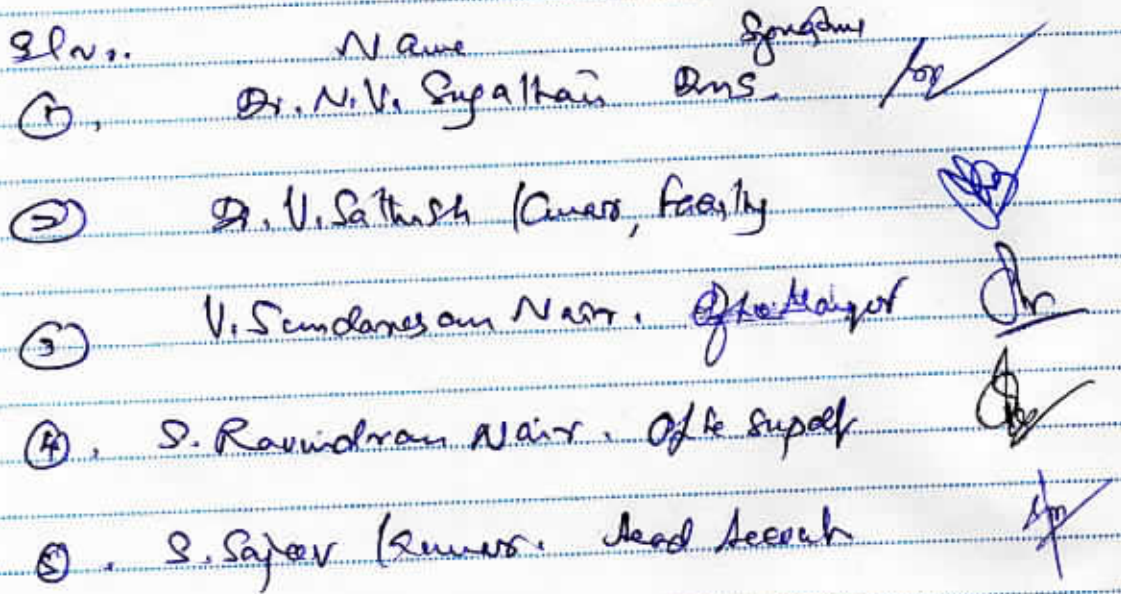 Sl No. Name Signature
①, Dr. N.V. Sugathan
② Dr. V. Sathish Kumar, Faculty
③ V. Sundaresan Nair. Office Manager
④. S. Ravindran Nair. Office Supdt
⑤. S. Sajeev Kumar. Head Account